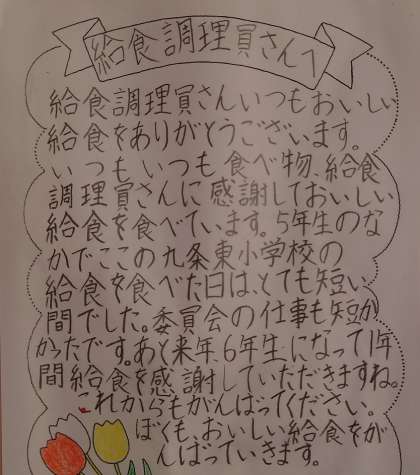 給食調理員さんへ
給食調理員さんいつもおいしい
給食をありがとうございます。
いつもいつも食べ物、給食
調理員さんに感謝しておいしい
給食を食べています。5年生のな
かでここの九条東小学校の
給食を食べた日は、とても短い
間でした。委員会の仕事も短か
かったです。あと来年、6年生になって1年
間給食を感謝していただきますね。
これからもがんばってください。
ぼくも、おいしい給食をが
んばっていきます。